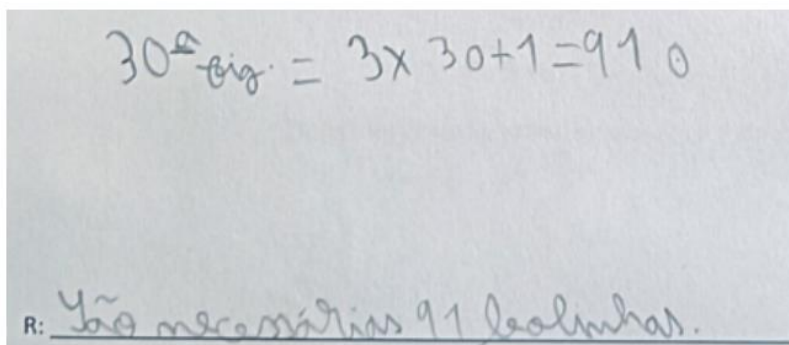 30ª fig. = 3x 30+1=91 o
R: São necessárias 91 bolinhas.